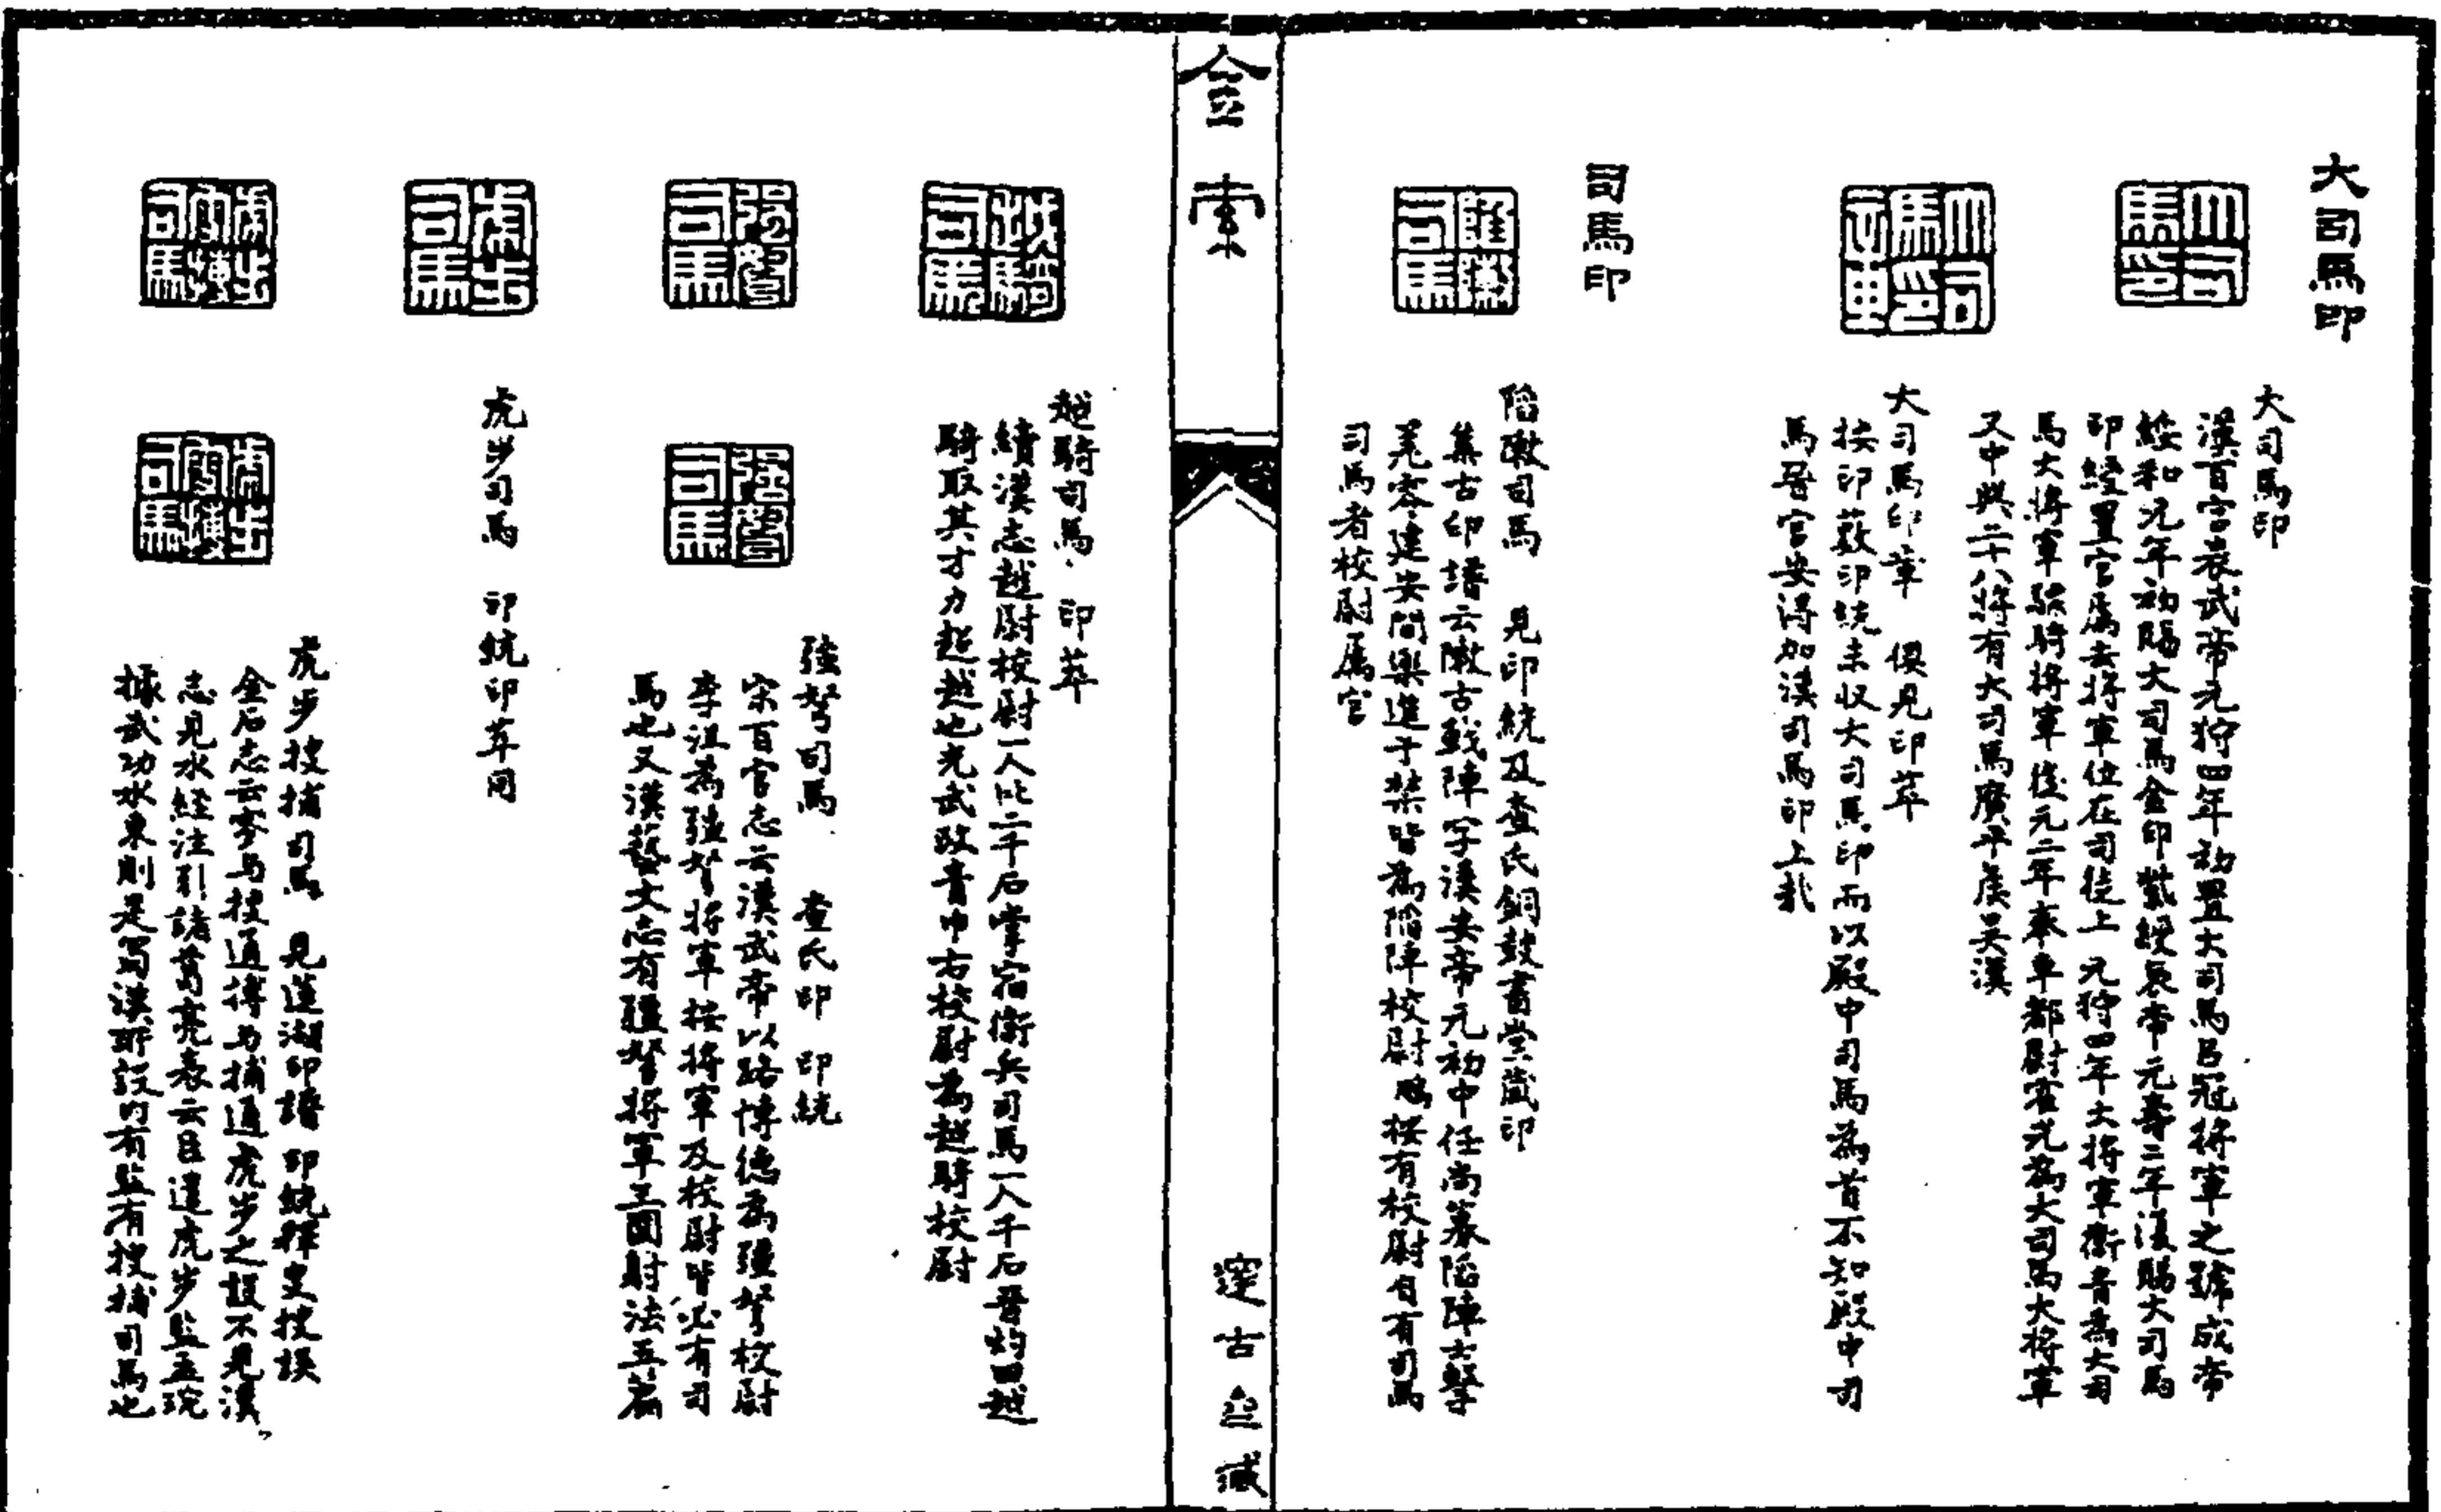 大司馬印
大司馬印
大司馬印
漢百官表武帝元狩四年初置大司馬㠯冠將軍之號成帝
綏和元年初賜大司馬金印紫綬哀帝元壽二年復賜大司馬
印綬置官屬去將軍位在司徒上 元狩四年大將軍衛青為大司
馬大將軍驃騎將軍後元二年奉車都尉霍光為大司馬大將軍
又中興二十八將有大司馬廣平侯吳漢
大司馬印章
大司馬印章 俱見印萃
按印藪印統未收大司馬印而以殿中司馬為首不知殿中司
馬晉官安得加漢司馬印上哉
司馬印
陷陳司馬
陷敶司馬 見印統及查氏銅鼓書堂藏印
集古印譜云敶古戰陣字漢安帝元初中任尚募陷陣士擊
羌零建安間樂進于禁皆為陷陣校尉 按有校尉自有司馬
司馬者校尉屬官
金索
邃古金咸
越騎司馬
越騎司馬 印萃
續漢志越騎校尉一人比二千石掌宿衛兵司馬一人千石晉灼曰越
騎取其才力超越也光武改青巾右校尉為越騎校尉
强弩司馬
强弩司馬
强弩司馬 查氏印 印統
宋百官志云漢武帝以路博德為强弩校尉
李沮為强弩將軍按將軍及校尉皆必有司
馬也又漢藝文志有彊弩將軍王圍射法五篇
虎步司馬
虎步司馬 印統印萃同
虎步搜捕司馬
虎步搜捕司馬
虎步搜捕司馬 見蓮湖印譜 印統釋叟搜誤
金石志云㝥與搜通搏與捕通虎步之設不見漢
志見水經注引諸葛亮表云臣遣虎步監孟琰
據武功水東則是蜀漢所設故有監有搜捕司馬也